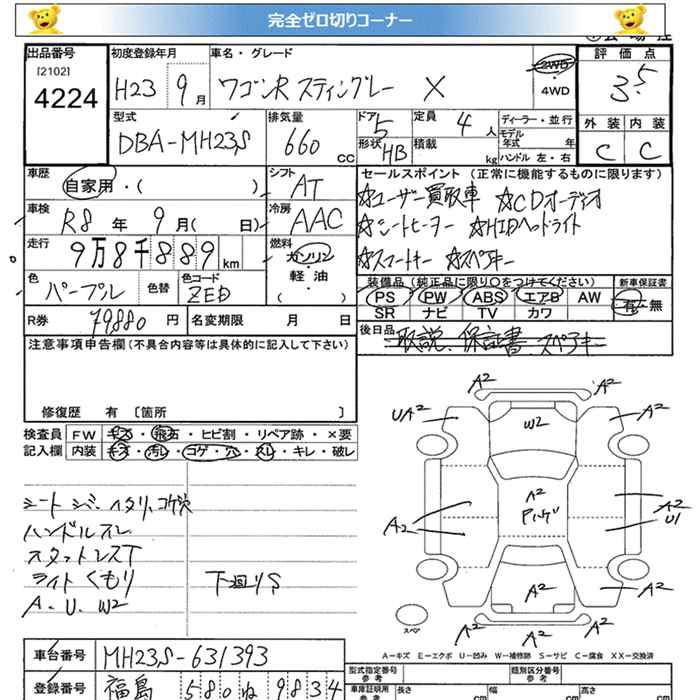 完全ゼロ切りコーナー
出品番号
[2102]
4224
初度登録年月
H23 9月
車名・グレード
ワゴンR スティングレー X
2WD
・
4WD
評価点
3.5
外装 内装
C C
型式
DBA-MH23S
排気量
660 CC
ドア 5
形状 HB
定員 4 人
積載 kg
ディーラー・並行
モデル年式 年式
ハンドル 左・右
車歴
自家用・( )
シフト
AT
車検
R8年 9月( 日)
冷房
AAC
走行
9万8千889 km
燃料
ガソリン
・
軽・油
( )
色
パープル
色替
色コード
ZED
R券 79880 円
名変期限 月 日
セールスポイント(正常に機能するものに限ります)
☆ユーザー買取車 ☆CDオーディオ
☆シートヒーター ☆HIDヘッドライト
☆スマートキー ☆スペアキー
装備品(純正品に限り○をつけてください)
PS PW ABS エアB AW
SR ナビ TV カワ
新車保証書
有・無
後日品
取説、保証書 スペアキー
注意事項申告欄(不具合内容等は具体的に記入して下さい)
修復歴 有 〔箇所 〕
検査員記入欄
FW キズ・飛石・ヒビ割・リペア跡・×要
内装 キズ・汚レ・コゲ・穴・スレ・キレ・破レ
ハンドルスレ
ライトくもり 下廻りS
A. U. W2
A2 A2
UA2 W2 A2
A2
A2 A2
U1
A2 A2 A2
スペア
A-キズ E-エクボ U-凹み W-補修跡 S-サビ C-腐食 XX-交換済
車台番号 MH23S-631393
登録番号 福島 580 ね 9834
型式指定番号 参考
類別区分番号 参考
車庫証明用 参考 長さ cm 幅 cm 高さ cm